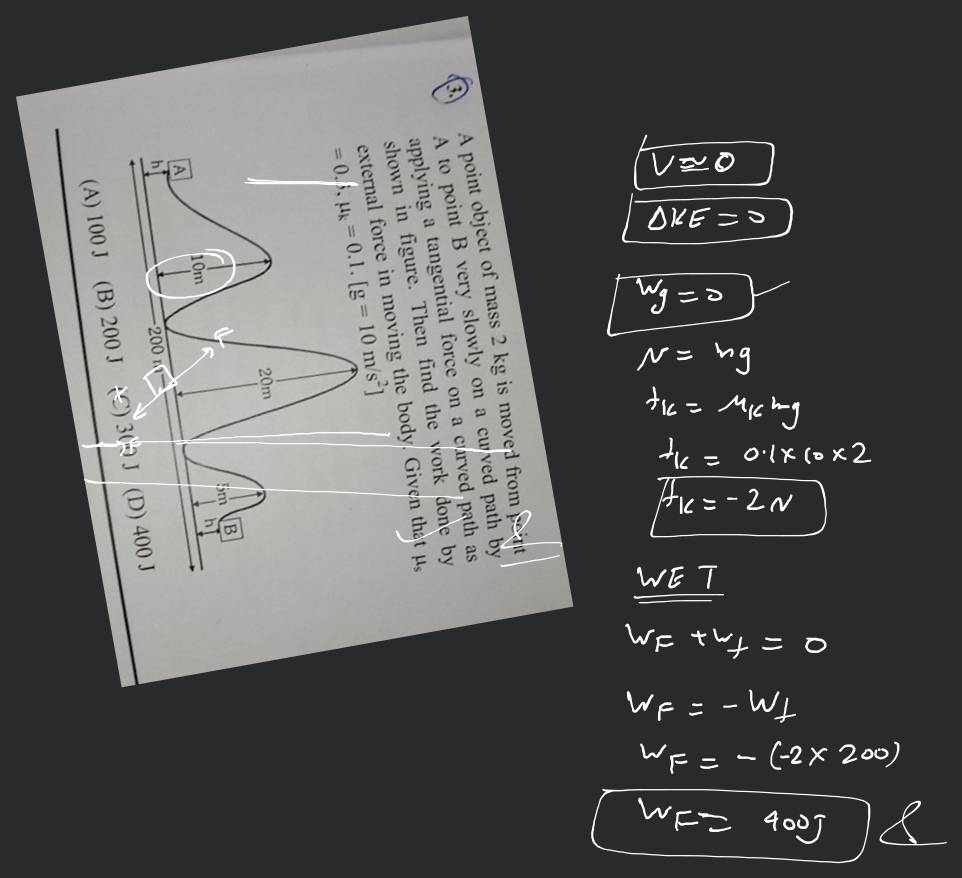 3.
A point object of mass 2 kg is moved from point
A to point B very slowly on a curved path by
applying a tangential force on a curved path as
shown in figure. Then find the work done by
external force in moving the body. Given that μs
= 0.3, μk = 0.1. [g = 10 m/s²]
A
h
10m
20m
5m
B
h
200 m
F
(A) 100 J (B) 200 J (C) 300 J (D) 400 J
V≈0
ΔKE = 0
Wg = 0
N = mg
fk = μk mg
fk = 0.1 x 10 x 2
fk = -2N
WET
WF + Wf = 0
WF = - Wf
WF = - (-2 x 200)
WF = 400J